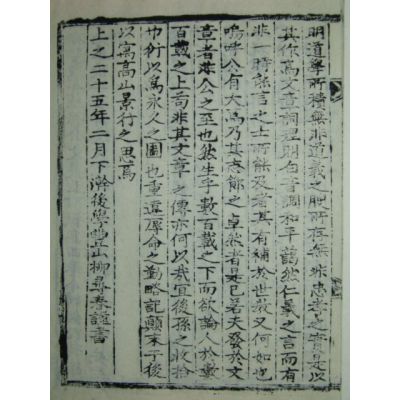 明道學所積無非道義之腴所存無非忠孝之實是以
其作爲文章詞理剴白音調和平藹然仁義之言而有
非一時能言之士所能及者其有補於世敎又何如也
嗚呼公有大焉乃其志節之卓然者是已若夫發於文
章者非公之至也然生乎數百載之下而欲論人於數
百載之上苟非其文章之傳亦何以哉宜後孫之收拾
也行以爲永久之圖也重違辱命之勤略記顚末于後
以寓高山景行之思焉
上之二十五年二月下澣後學豐山柳尋春謹書